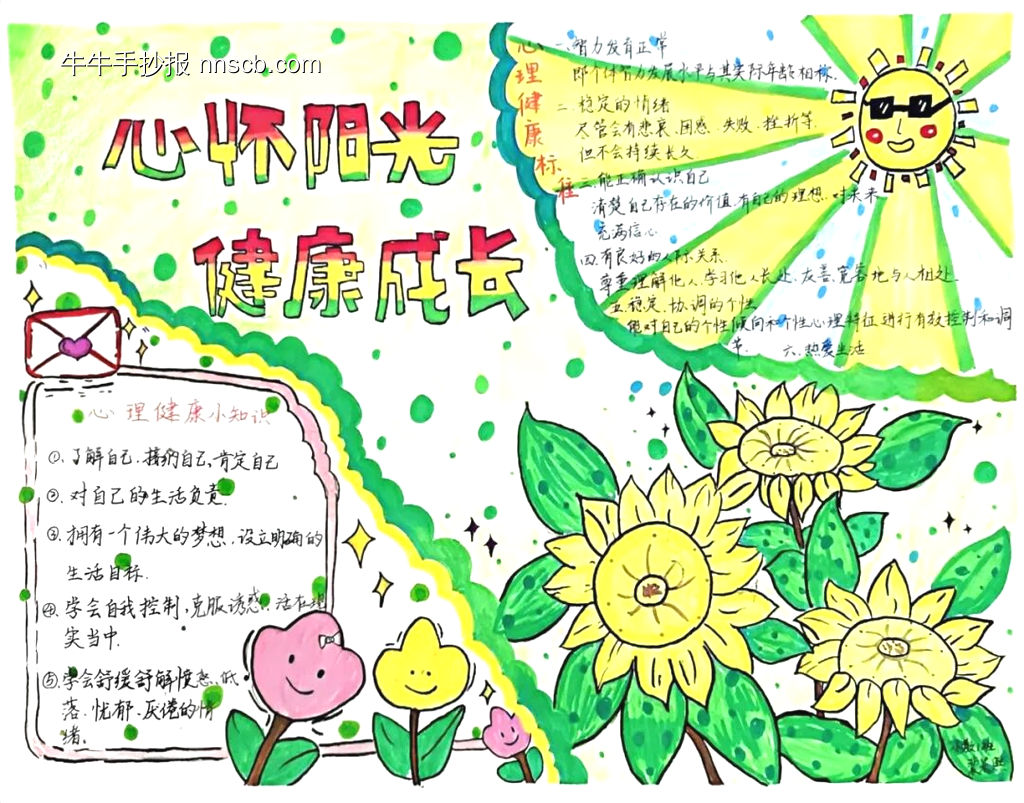 牛牛手抄报 nnscb.com
心怀阳光
健康成长
心理健康标准
一.智力发育正常
即个体智力发展水平与其实际年龄相称.
二.稳定的情绪
尽管会有悲哀、困惑、失败、挫折等.
但不会持续长久
三.能正确认识自己
清楚自己存在的价值.有自己的理想.对未来
充满信心
四.有良好的人际关系.
尊重理解他人.学习他人长处、友善、宽容地与人相处.
五.稳定、协调的个性
能对自己的个性倾向和个性心理特征进行有效控制和调
节.
六.热爱生活
心理健康小知识
①、了解自己、接纳自己、肯定自己
②.对自己的生活负责.
③、拥有一个伟大的梦想、设立明确的
生活目标.
④.学会自我控制.克服诱惑.活在现
实当中.
⑤.学会舒缓舒解愤怒、低
落、忧郁、厌倦的情
绪.